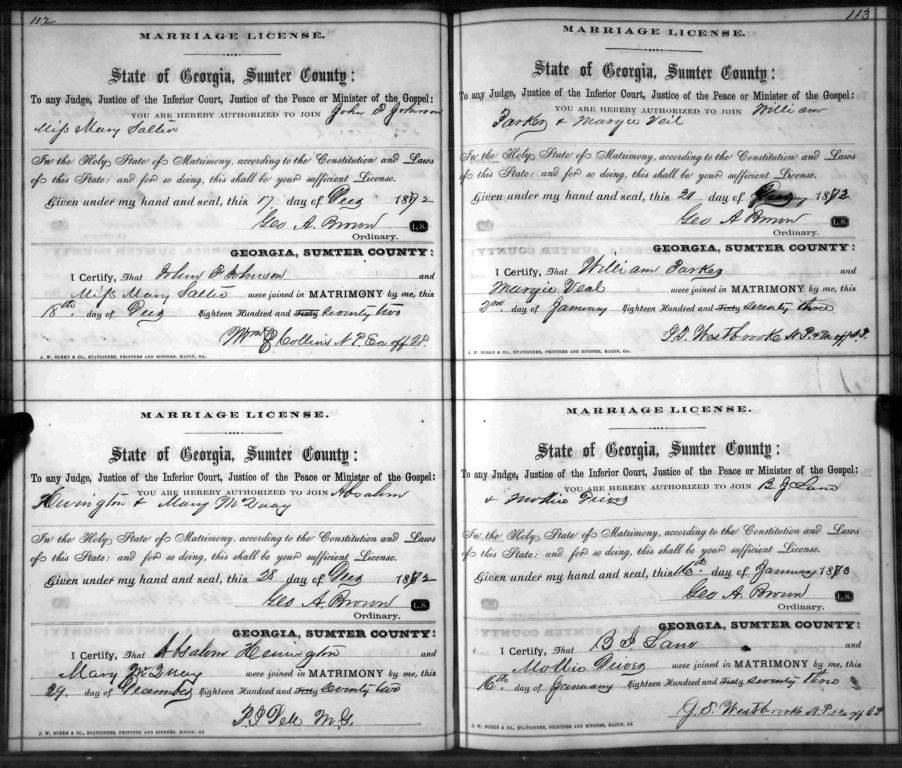 112
MARRIAGE LICENSE.
State of Georgia, Sumter County:
To any Judge, Justice of the Inferior Court, Justice of the Peace or Minister of the Gospel:
YOU ARE HEREBY AUTHORIZED TO JOIN John P Johnson
Miss Mary Salter
In the Holy State of Matrimony, according to the Constitution and Laws
of this State: and for so doing, this shall be your sufficient License.
Given under my hand and seal, this 17 day of Decr 1872
Geo A. Brown L.S.
Ordinary.
GEORGIA, SUMTER COUNTY:
I Certify, That John P Johnson and
Miss Mary Salter were joined in MATRIMONY by me, this
18th day of Decr Eighteen Hundred and Sixty seventy two
Wm Collins N.P. Ex off J.P.
J. W. BURKE & CO., STATIONERS, PRINTERS AND BINDERS, MACON, GA.
MARRIAGE LICENSE.
State of Georgia, Sumter County:
To any Judge, Justice of the Inferior Court, Justice of the Peace or Minister of the Gospel:
YOU ARE HEREBY AUTHORIZED TO JOIN Absalom
Herington & Mary McQuay
In the Holy State of Matrimony, according to the Constitution and Laws
of this State: and for so doing, this shall be your sufficient License.
Given under my hand and seal, this 28 day of Decr 1872
Geo A. Brown L.S.
Ordinary.
GEORGIA, SUMTER COUNTY:
I Certify, That Absalom Herrington and
Mary McQuay were joined in MATRIMONY by me, this
29 day of December Eighteen Hundred and Sixty seventy two
M.G.
J. W. BURKE & CO., STATIONERS, PRINTERS AND BINDERS, MACON, GA
113
MARRIAGE LICENSE.
State of Georgia, Sumter County:
To any Judge, Justice of the Inferior Court, Justice of the Peace or Minister of the Gospel:
YOU ARE HEREBY AUTHORIZED TO JOIN William
Parker & Margie Veil
In the Holy State of Matrimony, according to the Constitution and Laws
of this State: and for so doing, this shall be your sufficient License.
Given under my hand and seal, this day of 1872
Geo A Brown L.S.
Ordinary.
GEORGIA, SUMTER COUNTY:
I Certify, That William Parker and
Margie Veal were joined in MATRIMONY by me, this
2nd day of January Eighteen Hundred and Sixty seventy three
Westbrooke N.P. & Ex off J.P.
J. W. BURKE & CO., STATIONERS, PRINTERS AND BINDERS, MACON, GA.
MARRIAGE LICENSE.
State of Georgia, Sumter County:
To any Judge, Justice of the Inferior Court, Justice of the Peace or Minister of the Gospel:
YOU ARE HEREBY AUTHORIZED TO JOIN B J Land
& Mollie Driver
In the Holy State of Matrimony, according to the Constitution and Laws
of this State: and for so doing, this shall be your sufficient License.
Given under my hand and seal, this 16th day of January 1873
Geo A. Brown L.S.
Ordinary.
GEORGIA, SUMTER COUNTY:
I Certify, That B J Land and
Mollie Driver were joined in MATRIMONY by me, this
16th day of January Eighteen Hundred and Sixty seventy three
Westbrooke N.P. & Ex off J.P.
J. W. BURKE & CO., STATIONERS, PRINTERS AND BINDERS, MACON, GA